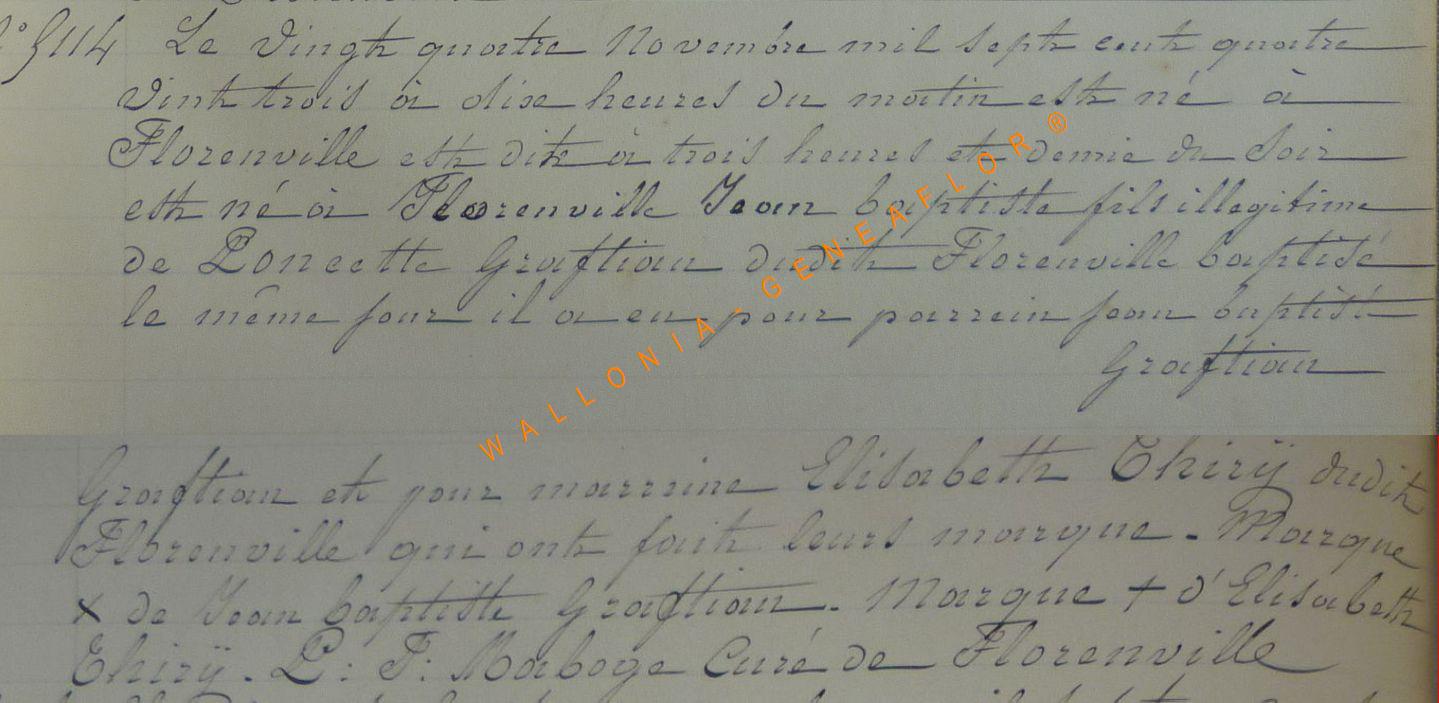 N° 5114 Le Vingt quatre Novembre mil sept cent quatre
Vint trois à dixe heures du matin est né à
Florenville est dit à trois heures et demie du Soir
est né à Florenville Jean baptiste fils illegitime
de Poncette Graftiau dudit Florenville baptisé
le même jour il a eu pour parrein jean baptisé
Graftiau
Graftiau et pour marraine Elisabeth Thirÿ dudit
Florenville qui ont fait leurs marque - Marque
x de Jean baptiste Graftiau. Marque + d'Elisabeth
Thirÿ. L: F: Maboge Curé de Florenville
WALLONIA - GENEAFLOR ®